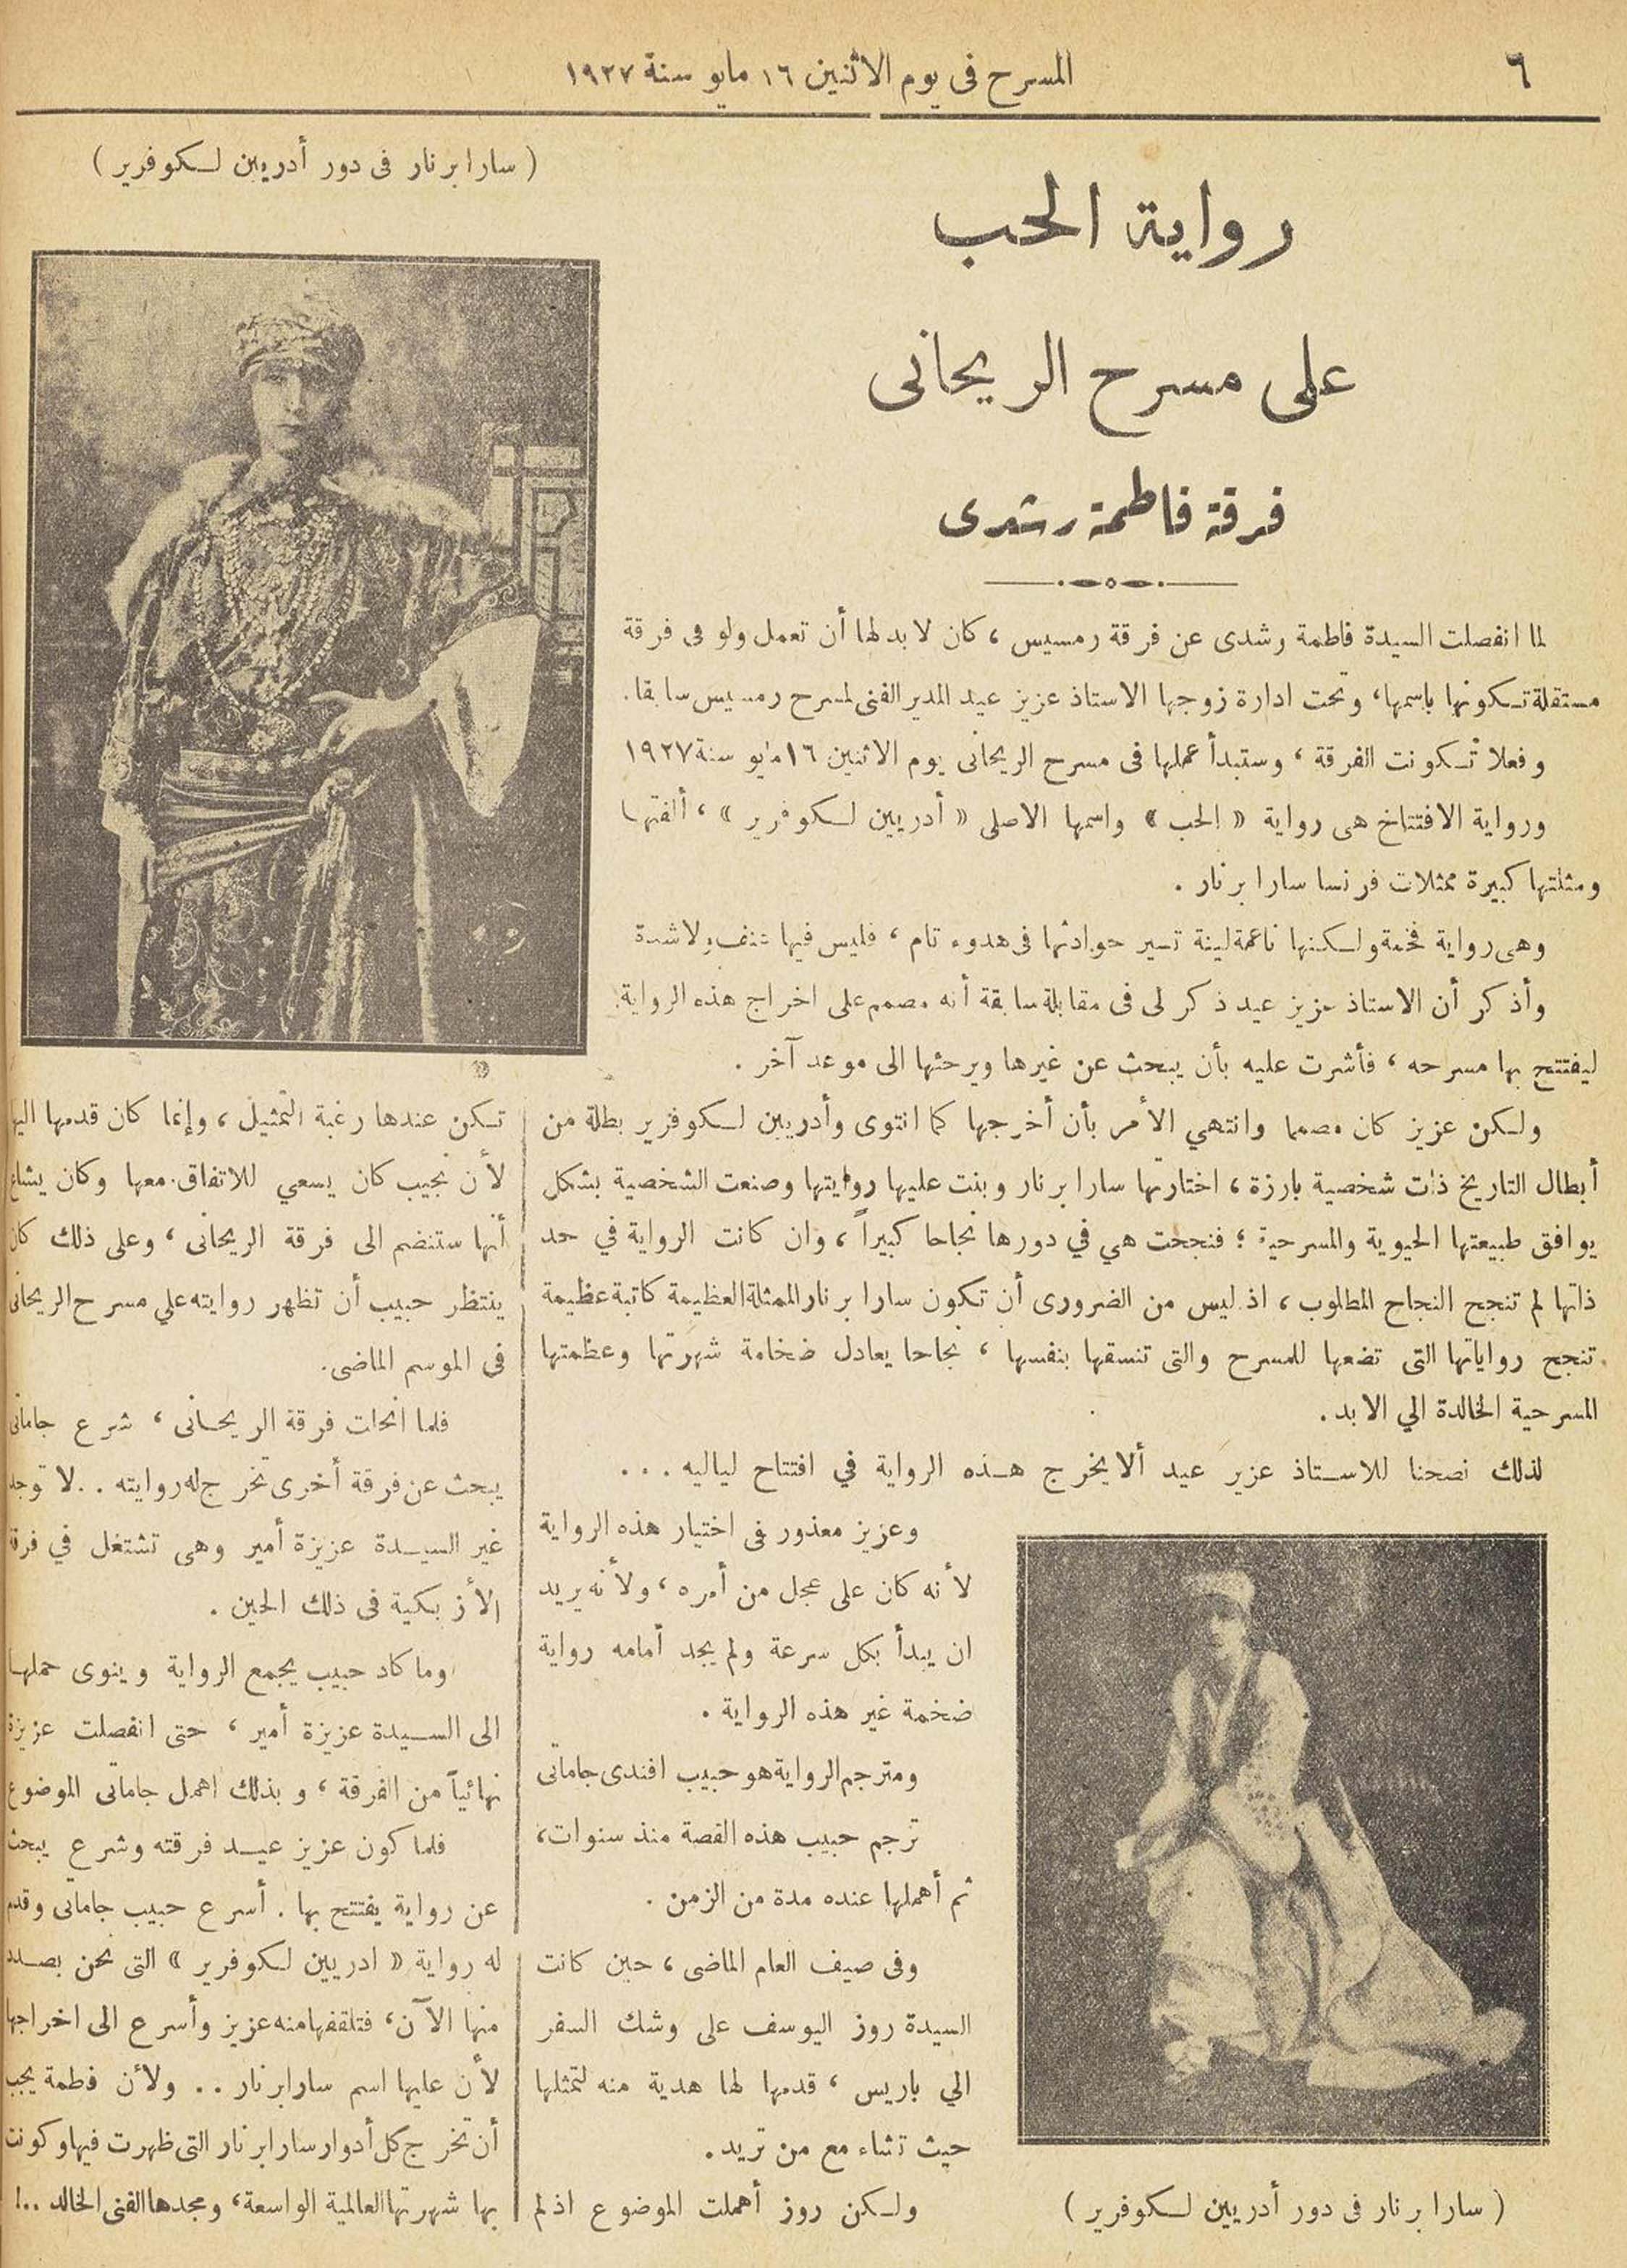 ٦
المسرح فى يوم الاثنين ١٦ مايو سنة ١٩٢٧
( سارا برنار فى دور أدريين لـكوفرير )
رواية الحب
على مسرح الريحانى
فرقة فاطمة رشدى
لما انفصلت السيدة فاطمة رشدى عن فرقة رمسيس ، كان لا بد لها أن تعمل ولو فى فرقة
مستقلة تـكونها باسمها ، وتحت ادارة زوجها الاستاذ عزيز عيد المدير الفنى لمسرح رمسيس سابقا .
وفعلا تـكونت الفرقة ، وستبدأ عملها فى مسرح الريحانى يوم الاثنين ١٦ مايو سنة ١٩٢٧
ورواية الافتتاخ هى رواية « الحب » واسمها الاصلى « أدريين لـكوفرير » ، ألفتها
ومثلتها كبيرة ممثلات فرنسا سارا برنار .
وهى رواية فخمة ولـكنها ناعمة لينة تسير حوادثها فى هدوء تام ، فليس فيها عنف ولا شدة
وأذكر أن الاستاذ عزيز عيد ذكر لى فى مقابلة سابقة أنه مصمم على اخراج هذه الرواية
ليفتتح بها مسرحه ، فأشرت عليه بأن يبحث عن غيرها ويرجئها الى موعد آخر .
ولـكن عزيز كان مصمما وانتهي الأمر بأن أخرجها كما انتوى وأدريين لـكوفرير بطلة من
أبطال التاريخ ذات شخصية بارزة ، اختارتها سارا برنار وبنت عليها روايتها وصنعت الشخصية بشكل
يوافق طبيعتها الحيوية والمسرحية ؛ فنجحت هي في دورها نجاحا كبيراً ، وان كانت الرواية في حد
ذاتها لم تنجح النجاح المطلوب ، اذ ليس من الضرورى أن تكون سارا برنار الممثلة العظيمة كاتبة عظيمة
تنجح رواياتها التى تضعها للمسرح والتى تنسقها بنفسها ، نجاحا يعادل ضخامة شهرتها وعظمتها
المسرحية الخالدة الي الابد .
لذلك نصحنا للاسـتاذ عزيز عيد ألا يخرج هـذه الرواية في افتتاح لياليه . . .
وعزيز معذور فى اختيار هذه الرواية
لأنه كان على عجل من أمره ، ولأنه يريد
ان يبدأ بكل سرعة ولم يجد أمامه رواية
ضخمة غير هذه الرواية .
ومترجم الرواية هو حبيب افندى جاماتى
ترجم حبيب هذه القصة منذ سنوات ،
ثم أهملها عنده مدة من الزمن .
وفى صيف العام الماضى ، حين كانت
السيدة روز اليوسف على وشك السفر
الي باريس ، قدمها لها هدية منه لتمثلها
حيث تشاء مع من تريد .
ولـكن روز أهملت الموضوع اذ لم
( سارا برنار فى دور أدريين لـكوفرير )
تـكن عندها رغبة التمثيل ، وإنما كان قدمها اليها
لأن نجيب كان يسعي للاتفاق معها وكان يشاع
أنها ستنضم الى فرقة الريحانى ، وعلى ذلك كان
ينتظر حبيب أن تظهر روايته علي مسرح الريحانى
فى الموسم الماضى .
فلما انحلت فرقة الريحـانى ، شرع جاماتى
يبحث عن فرقة أخرى تخرج له روايته . . لا توجد
غير السيـدة عزيزة أمير وهى تشتغل في فرقة
الأزبكية فى ذلك الحين .
وما كاد حبيب يجمع الرواية وينوى حملهـا
الى السـيدة عزيزة أمير ، حتى انفصلت عزيزة
نهائياً من الفرقة ، وبذلك اهمل جاماتى الموضوع
فلما كون عزيز عيـد فرقته وشرع يبحث
عن رواية يفتتح بها . أسرع حبيب جاماتى وقدم
له رواية « ادريين لـكوفرير » التى نحن بصـدد
منها الآن ، فتلقفها منه عزيز وأسرع الى اخراجها
لأن عليها اسم سارا برنار . . ولأن فاطمة يجب
أن تخرج كل أدوار سارا برنار التى ظهرت فيها وكونت
بها شهرتها العالمية الواسعة ، ومجدها الفنى الخالد . . !